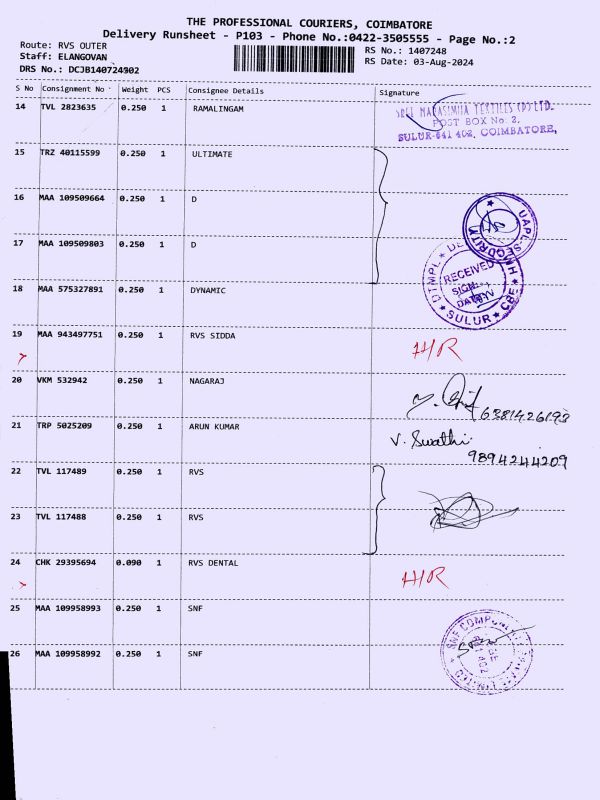 THE PROFESSIONAL COURIERS, COIMBATORE
Delivery Runsheet - P103 - Phone No.:0422-3505555 - Page No.:2
Route: RVS OUTER
Staff: ELANGOVAN
DRS No.: DCJB140724902
RS No.: 1407248
RS Date: 03-Aug-2024
S No Consignment No Weight PCS Consignee Details Signature
14 TVL 2823635 0.250 1 RAMALINGAM
TEXTILES (P) LTD.
POST BOX No. 2,
SULUR-641 402, COIMBATORE,
15 TRZ 40115599 0.250 1 ULTIMATE
16 MAA 109509664 0.250 1 D
17 MAA 109509803 0.250 1 D
RECEIVED
SIGN
DATE
SULUR
18 MAA 575327891 0.250 1 DYNAMIC
19 MAA 943497751 0.250 1 RVS SIDDA H/R
20 VKM 532942 0.250 1 NAGARAJ 6381426193
21 TRP 5025209 0.250 1 ARUN KUMAR V. Swathi
9894244209
22 TVL 117489 0.250 1 RVS
23 TVL 117488 0.250 1 RVS
24 CHK 29395694 0.090 1 RVS DENTAL H/R
25 MAA 109958993 0.250 1 SNF
26 MAA 109958992 0.250 1 SNF